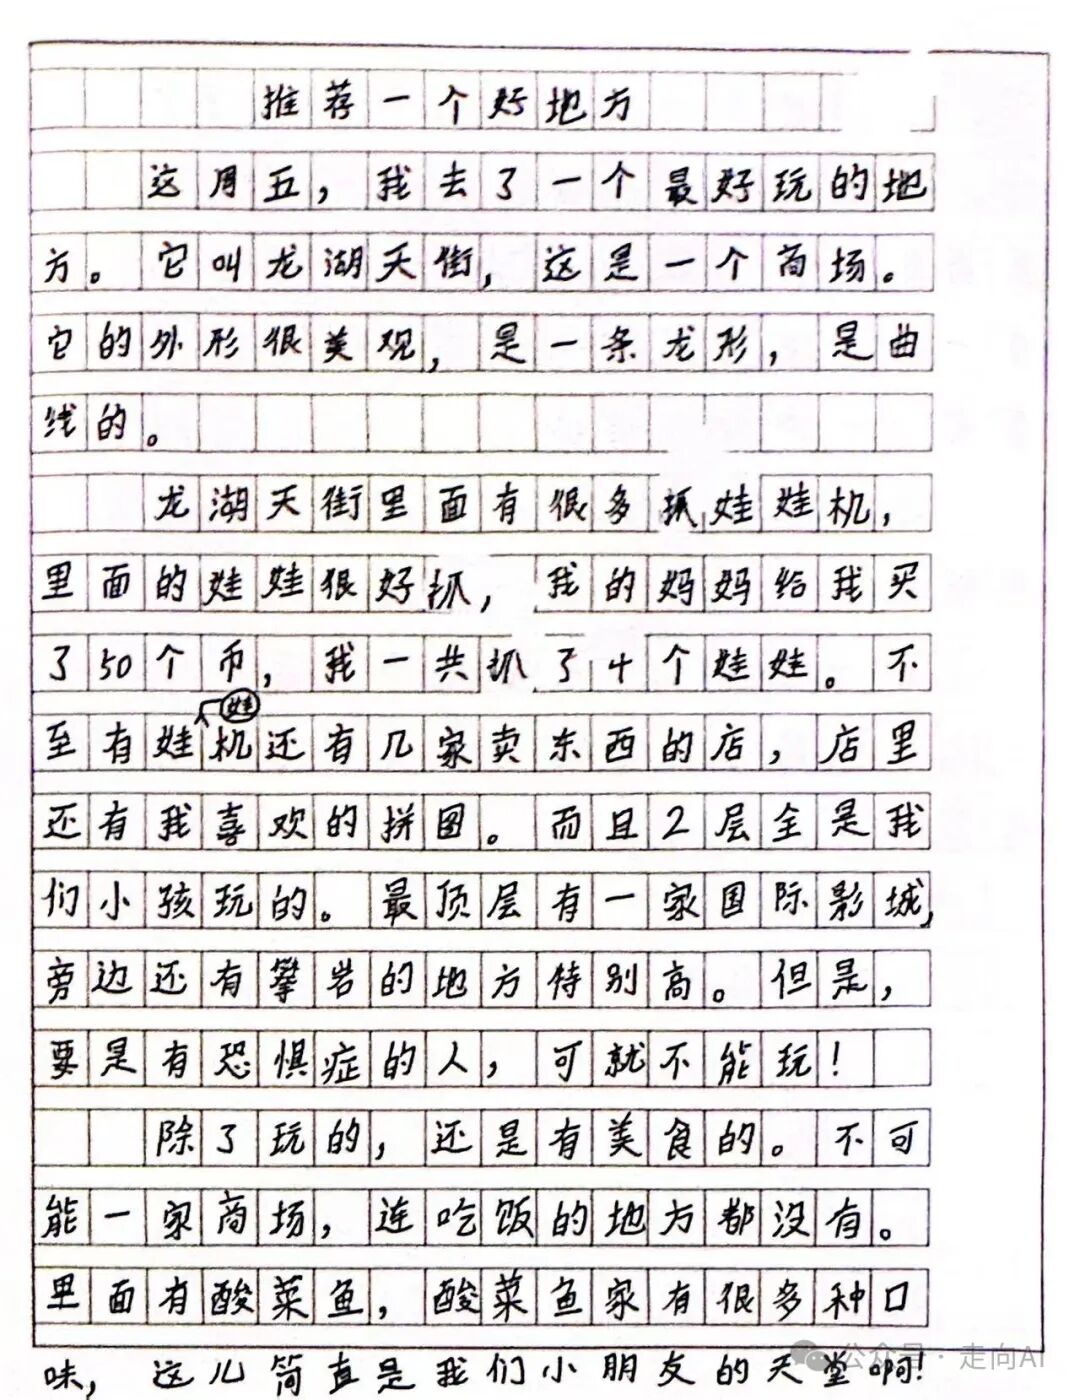 推荐一个好地方
这周五，我去了一个最好玩的地
方。它叫龙湖天街，这是一个商场。
它的外形很美观，是一条龙形，是曲
线的。
龙湖天街里面有很多抓娃娃机，
里面的娃娃很好抓，我的妈妈给我买
了50个币，我一共抓了4个娃娃。不
娃
至有娃机还有几家卖东西的店，店里
还有我喜欢的拼图。而且2层全是我
们小孩玩的。最顶层有一家国际影城，
旁边还有攀岩的地方特别高。但是，
要是有恐惧症的人，可就不能玩！
除了玩的，还是有美食的。不可
能一家商场，连吃饭的地方都没有。
里面有酸菜鱼，酸菜鱼家有很多种口
味，这儿简直是我们小朋友的天堂啊！
公众号·走向AI